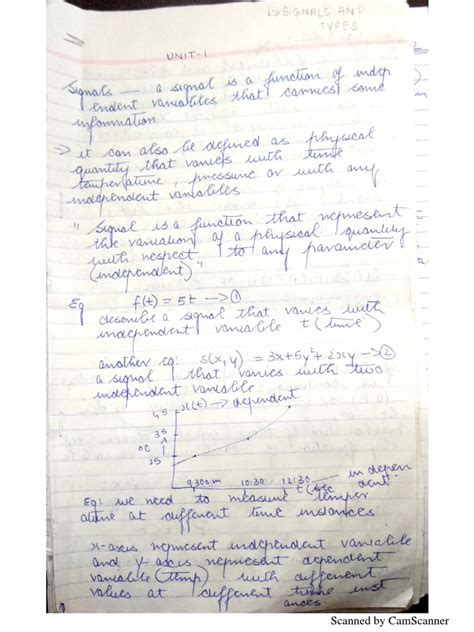 ↳ SIGNALS AND
TYPES
UNIT-1
Signals — a signal is a function of indep
endent variables that carries some
information
⇒ it can also be defined as physical
quantity that varies with time
temperature, pressure or with any
independent variables
" Signal is a function that represent
the variation of a physical quantity
with respect to any parameter
(independent)."
Eg f(t) = 5t —> ①
describe a signal that varies with
independent variable t (time)
another eg: s(x,y) = 3x+5y²+2xy —> ②
a signal that varies with two
independent variable
x(t) -> dependent
45
35
°C
25
9:30am 10:30 12:30
t (sec
in depen
dent.
Eg: we need to measure temper
ature at different time instances
x-axis represent independent variable
and y-axis represent dependent
variable (temp) with different
values at different time inst
ances.
Scanned by CamScanner